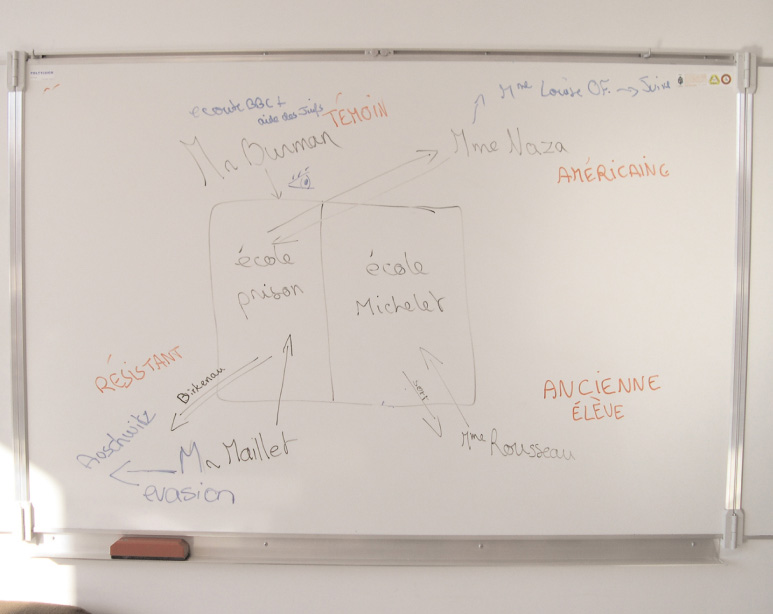 écoute BBC +
aide des Juifs
TÉMOIN
Mr Burman
Mme Naza
AMÉRICAINE
école
prison
école
Michelet
RÉSISTANT
Birkenau
Aoschwitz
Mr Maillet
evasion
ANCIENNE
ÉLÈVE
Mme Rousseau
Mme Louise